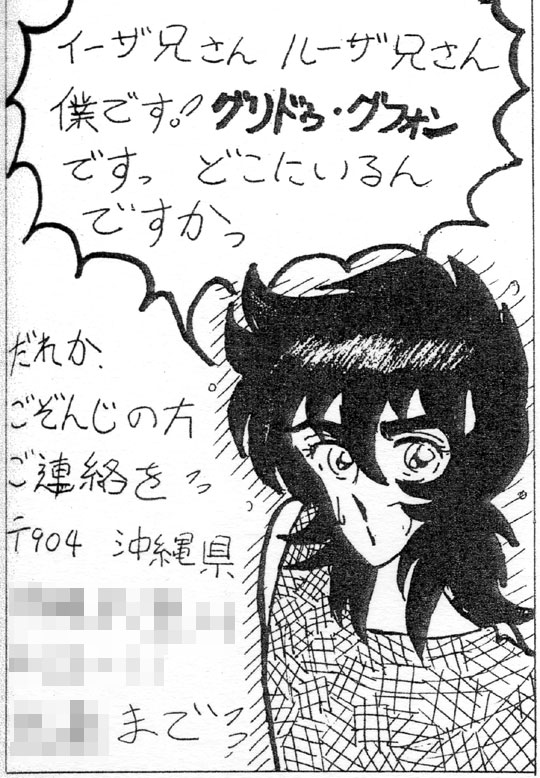 イーザ兄さん ルーザ兄さん
僕です。！グリドゥ・グフォン
ですっ どこにいるん
ですかっ
だれか、
ごぞんじの方
ご連絡をっっ
〒904 沖縄県
までっっっ